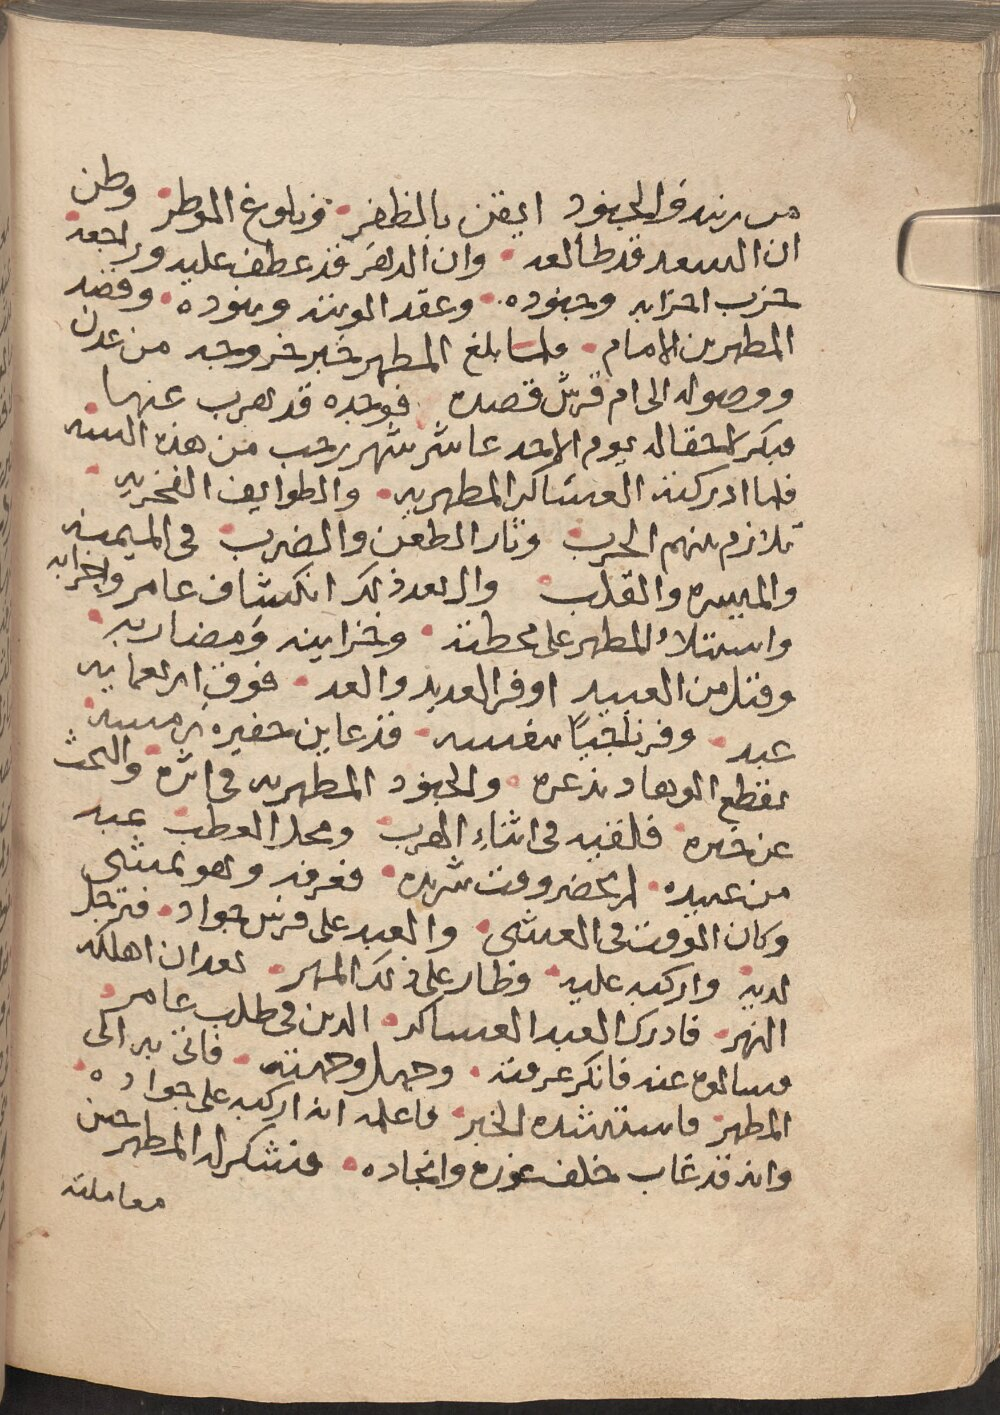 من بريده والجنود ايقن بالظفر وبلوغ الوطر وظن
ان السعد قد طالعه وان الدهر قد عطف عليه وراجعه
حزب احزابه وجنوده وعقد الويته وبنوده وقصد
المطهر بن الامام ولما بلغ المطهر خبر خروجه من عدن
ووصوله الى ام قريش قصده فوجده قد هرب عنها
مبكرا حقاله يوم الاحد عاشر شهر رجب من هذه السنه
فلما ادركته العساكر المطهريه والطوايف الفخريه
تلازم بينهم الحرب وثار الطعن والضرب فى الميمنه
والميسره والقلب وال بعد ذلك انكشاف عامر واحزابه
واستيلاء المطهر على محطته وخزاينه ومضاربه
وقتل من العبيد اوفر العديد والعد فوق اربعمايه
عبد وفر ناجيًا بنفسه قد عاين حفيره رمسه
يقطع الوهاد بذعره والجنود المطهريه فى اثره والبحث
عن خبره فلقيه فى اثناء الهرب ومحل العطب عبد
من عبيده لم يحضر وقت شريده فعرفه وهو يمشى
وكان الوقت فى العشى والعبد على فرس جواد فترجل
لديه واركبه عليه وطار على ذلك المهر بعد ان اهلكه
النهر فادرك العبد العساكر الذين فى طلب عامر
فسالوه عنه فانكر معرفته وجهل وجهته فاتى به الى
المطهر فاستنشده الخبر فاعلمه انه اركبه على جواده
وانه قد غاب خلف غوره وانجاده فشكر له المطهر حسن
معاملته